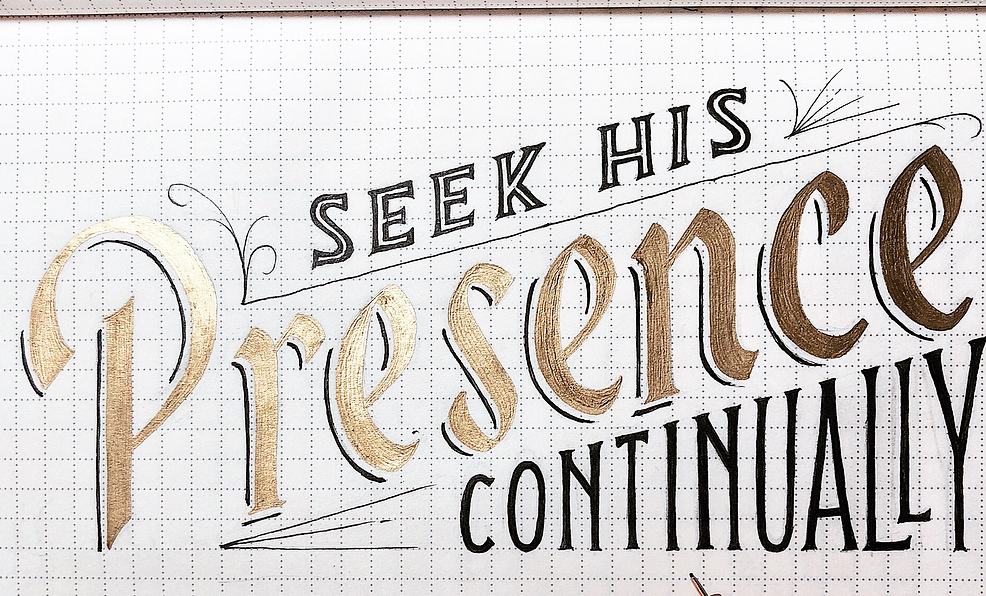 SEEK HIS
Presence
CONTINUALLY